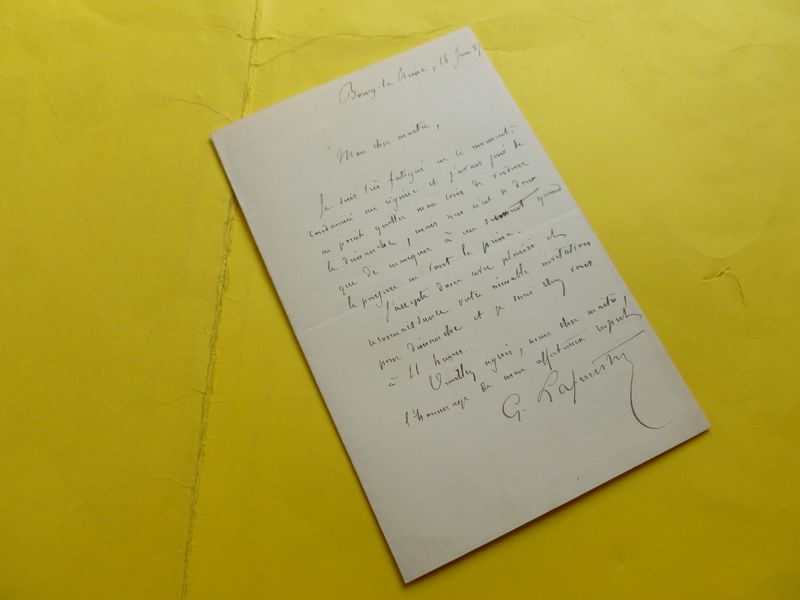 Bourg la Reine, 16 Juin
Mon cher maître,
Je suis très fatigué en ce moment.
Condamné au régime et j'avais juré de
ne point quitter mon coin de verdure
le dimanche, mais rien n'est si doux
que de manquer à un serment quand
le parjure en vaut la peine.
J'accepte donc avec plaisir et
reconnaissance votre aimable invitation
pour dimanche et je serai chez vous
à 11 heures.
Veuillez agréer, mon cher maître,
l'hommage de mon affectueux respect
G. Lafenestre